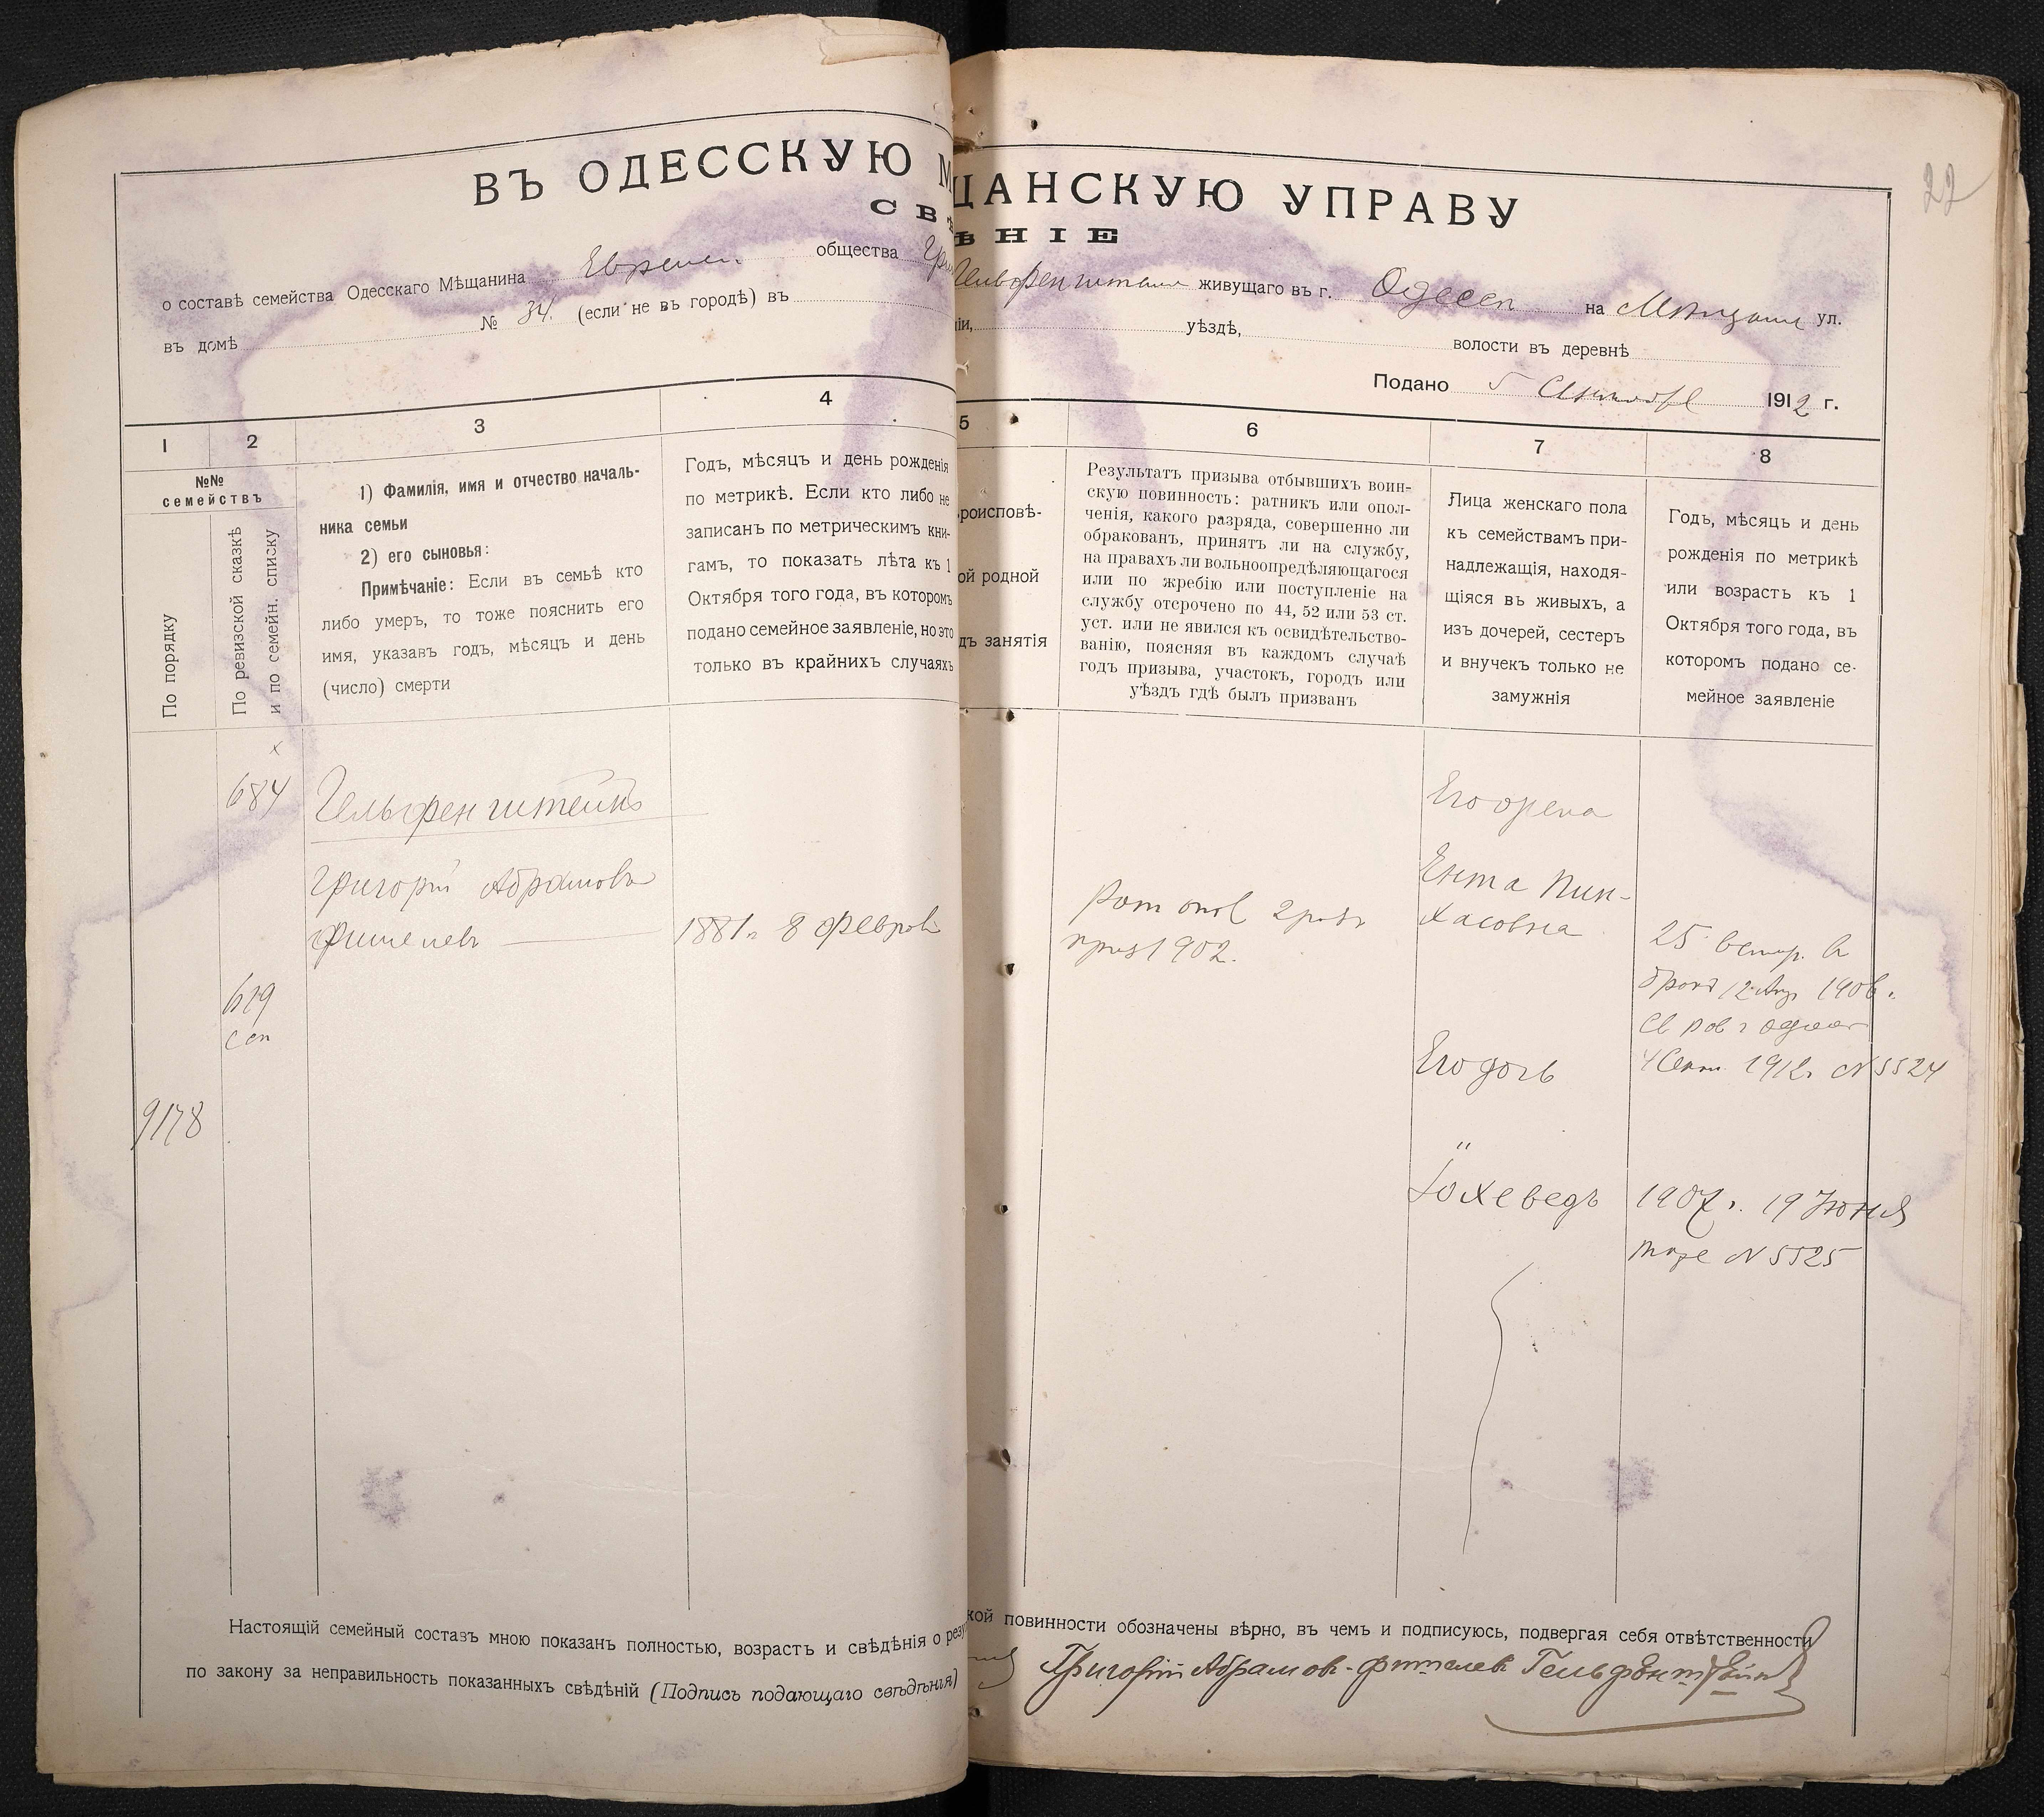 22
ВЪ ОДЕССКУЮ М ЩАНСКУЮ УПРАВУ
СВѢ ѢНІЕ
о составѣ семейства Одесскаго Мѣщанина общества живущаго въ г. Одессѣ на ул.
въ домѣ № 34. (если не въ городѣ) въ ніи, уѣздѣ, волости въ деревнѣ
Подано 5 1912 г.
1 2 3 4 5 6 7 8
№№
семействъ
По порядку
По ревизской сказкѣ
и по семейн. списку
1) Фамилія, имя и отчество началь-
ника семьи
2) его сыновья:
Примѣчаніе: Если въ семьѣ кто
либо умеръ, то тоже пояснить его
имя, указавъ годъ, мѣсяцъ и день
(число) смерти
Годъ, мѣсяцъ и день рожденія
по метрикѣ. Если кто либо не
записанъ по метрическимъ кни-
гамъ, то показать лѣта къ 1
Октября того года, въ которомъ
подано семейное заявленіе, но это
только въ крайнихъ случаяхъ
роисповѣ-
ой родной
дъ занятія
Результатъ призыва отбывшихъ воин-
скую повинность: ратникъ или опол-
ченія, какого разряда, совершенно ли
обракованъ, принятъ ли на службу,
на правахъ ли вольноопредѣляющагося
или по жребію или поступленіе на
службу отсрочено по 44, 52 или 53 ст.
уст. или не явился къ освидѣтельство-
ванію, поясняя въ каждомъ случаѣ
годъ призыва, участокъ, городъ или
уѣздъ гдѣ былъ призванъ
Лица женскаго пола
къ семействамъ при-
надлежащія, находя-
щіяся въ живыхъ, а
изъ дочерей, сестеръ
и внучекъ только не
замужнія
Годъ, мѣсяцъ и день
рожденія по метрикѣ
или возрастъ къ 1
Октября того года, въ
которомъ подано се-
мейное заявленіе
х
684
Гельфенштейнъ
Григорій Абрамовъ
Фишелевъ
1881 г. 8 Феврал
619
9178
приз 1902.
Его
Ента Пин-
хасовна
25
12 1906 г.
1912 г. № 5524
Его дочь
"
Іохеведъ
1907 г. 19 Іюня
тоже № 5525
Настоящій семейный составъ мною показанъ полностью, возрастъ и свѣдѣнія о резу кой повинности обозначены вѣрно, въ чемъ и подписуюсь, подвергая себя отвѣтственности
по закону за неправильность показанныхъ свѣдѣній (Подпись подающаго свѣдѣнія) Григорій Абрамов-Фишелев Гельфенштейнъ